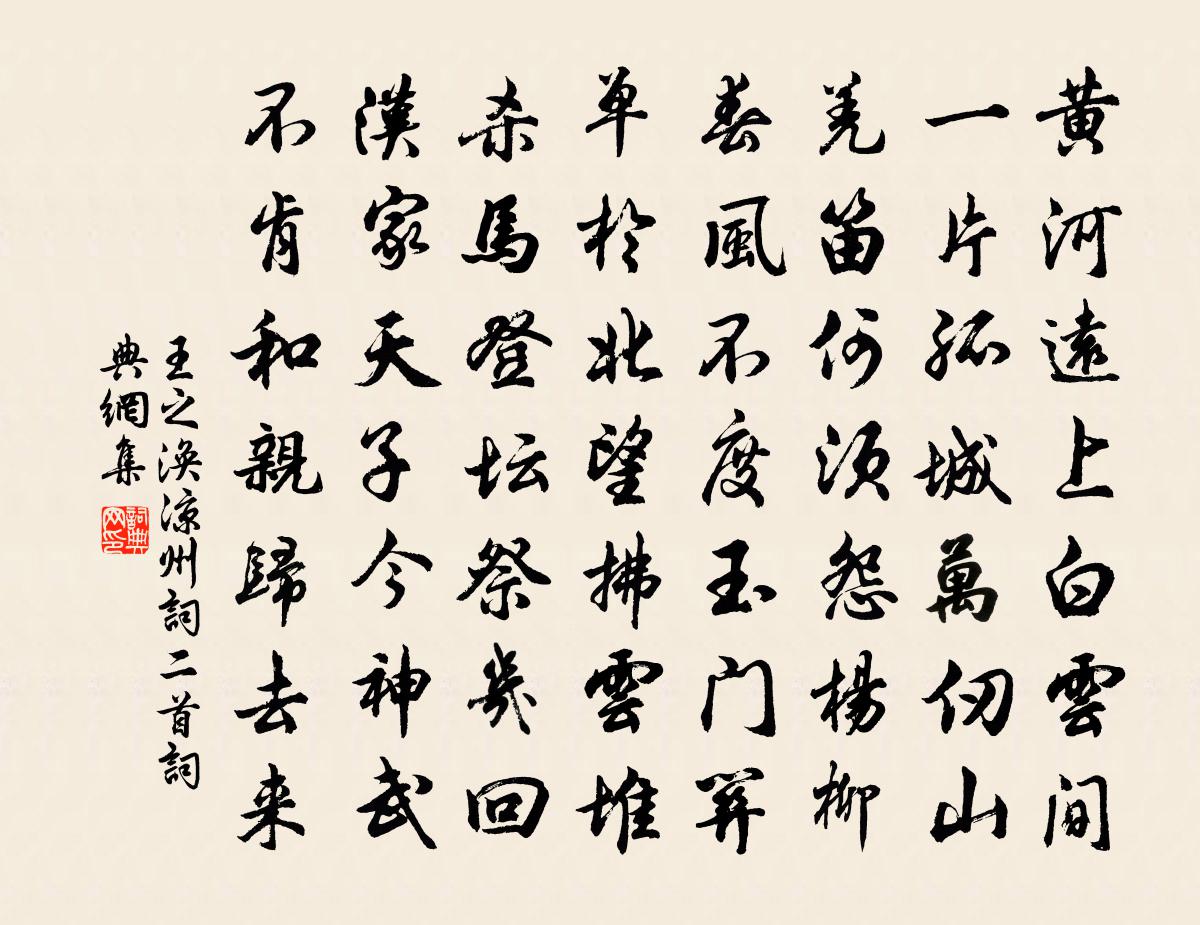 黄河遠上白雲間
一片孤城萬仞山
羌笛何須怨楊柳
春風不度玉门關
单於北望拂雲堆
杀馬登坛祭幾回
漢家天子今神武
不肯和親歸去来
王之涣涼州詞二首詞
典網集
詞典网印